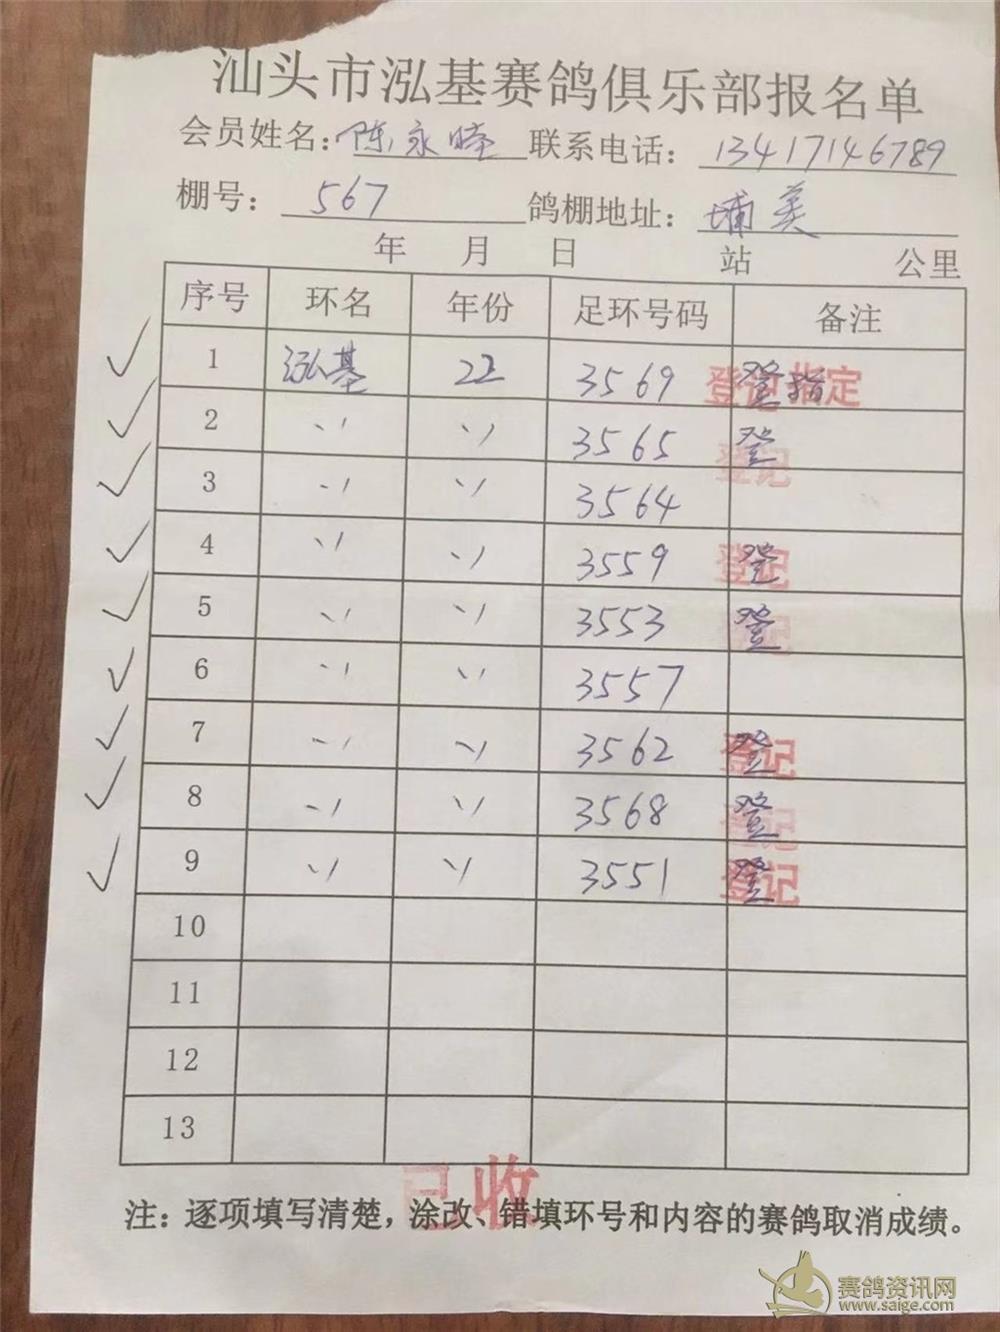 汕头市泓基赛鸽俱乐部报名单
会员姓名：陈永 联系电话：13417146789
棚号：567 鸽棚地址：埔美
年 月 日 站 公里
序号 环名 年份 足环号码 备注
1 泓基 22 3569 登指 登记 指定
2 〃 〃 3565 登 登记
3 〃 〃 3564
4 〃 〃 3559 登 登记
5 〃 〃 3553 登 登记
6 〃 〃 3557
7 〃 〃 3562 登 登记
8 〃 〃 3568 登 登记
9 〃 〃 3551 登 登记
10
11
12
13
已收
注：逐项填写清楚，涂改、错填环号和内容的赛鸽取消成绩。
赛鸽资讯网
www.saige.com